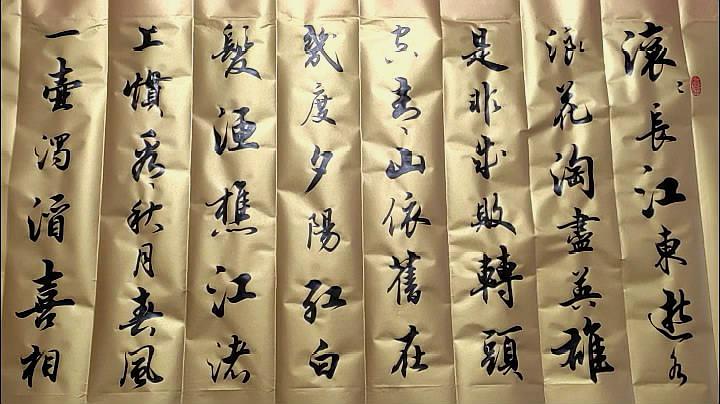 滾〻長江東逝水
浪花淘盡英雄
是非成敗轉頭
空青山依舊在
幾度夕陽紅白
髮漁樵江渚
上慣看秋月春風
一壺濁酒喜相